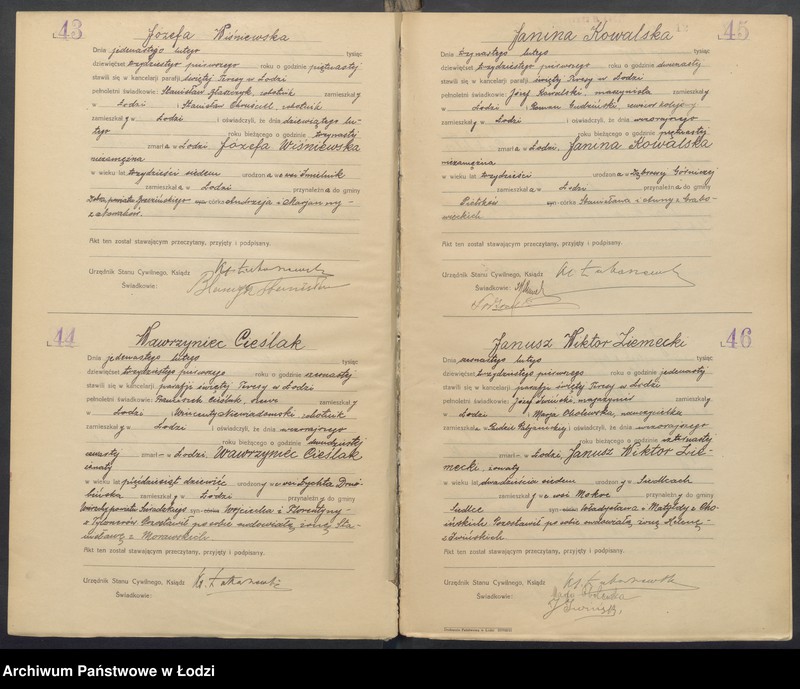 43
Józefa Wiśniewska
Dnia jedenastego lutego tysiąc
dziewięćset trzydziestego pierwszego roku o godzinie piętnastej
stawili się w kancelarji parafji świętej Teresy w Łodzi
pełnoletni świadkowie: Stanisław robotnik zamieszkały
w Łodzi i Stanisław robotnik
zamieszkały w Łodzi i oświadczyli, że dnia dziewiątego lu-
tego roku bieżącego o godzinie trzynastej
zmarła w Łodzi, Józefa Wiśniewska
niezamężna
w wieku lat trzydzieści siedem urodzona we wsi
zamieszkała w Łodzi przynależna do gminy
powiatu córka Andrzeja i Marjanny
Akt ten został stawającym przeczytany, przyjęty i podpisany.
Urzędnik Stanu Cywilnego, Ksiądz
Świadkowie:
44
Wawrzyniec Cieślak
Dnia jedenastego lutego tysiąc
dziewięćset trzydziestego pierwszego roku o godzinie szesnastej
stawili się w kancelarji parafji świętej Teresy w Łodzi
pełnoletni świadkowie: Franciszek Cieślak, zamieszkały
w Łodzi i Wincenty Niewiadomski, robotnik
zamieszkały w Łodzi i oświadczyli, że dnia wczorajszego
roku bieżącego o godzinie dwudziestej
czwartej zmarł w Łodzi, Wawrzyniec Cieślak
żonaty
w wieku lat pięćdziesiąt dziewięć urodzony we wsi Zychta Druż-
bińska zamieszkały w Łodzi przynależny do gminy
powiatu Sieradzkiego syn Wojciecha i Florentyny
z Pozostawił po sobie owdowiałą żonę Sta-
nisławę z Morawskich
Akt ten został stawającym przeczytany, przyjęty i podpisany.
Urzędnik Stanu Cywilnego, Ksiądz
Świadkowie:
45
Janina Kowalska
Dnia trzynastego lutego tysiąc
dziewięćset trzydziestego pierwszego roku o godzinie dwunastej
stawili się w kancelarji parafji świętej Teresy w Łodzi
pełnoletni świadkowie: Józef Kowalski, maszynista zamieszkały
w Łodzi i Roman
zamieszkały w Łodzi i oświadczyli, że dnia wczorajszego
roku bieżącego o godzinie piętnastej
zmarła w Łodzi, Janina Kowalska
niezamężna
w wieku lat trzydzieści urodzona w Dąbrowej Górniczej
zamieszkała w Łodzi przynależna do gminy
Piotrków córka Stanisława i Anny z Grabo-
wieckich
Akt ten został stawającym przeczytany, przyjęty i podpisany.
Urzędnik Stanu Cywilnego, Ksiądz
Świadkowie:
46
Janusz Wiktor Ziemecki
Dnia szesnastego lutego tysiąc
dziewięćset trzydziestego pierwszego roku o godzinie jedenastej
stawili się w kancelarji parafji świętej Teresy w Łodzi
pełnoletni świadkowie: Józef Iwiński, magazynier zamieszkały
w Łodzi i Marja Cholewska, nauczycielka
zamieszkała w Rudzie Pabjanickiej i oświadczyli, że dnia wczorajszego
roku bieżącego o godzinie czternastej
zmarł w Łodzi, Janusz Wiktor Zie-
mecki, żonaty
w wieku lat dwadzieścia siedem urodzony w Siedlcach
zamieszkały we wsi Mokre przynależny do gminy
Siedlce syn Władysława i Matyldy z Cho-
ińskich Pozostawił po sobie owdowiałą żonę Helenę
z Iwińskich
Akt ten został stawającym przeczytany, przyjęty i podpisany.
Urzędnik Stanu Cywilnego, Ksiądz
Świadkowie:
J. Iwiński
Archiwum Państwowe w Łodzi